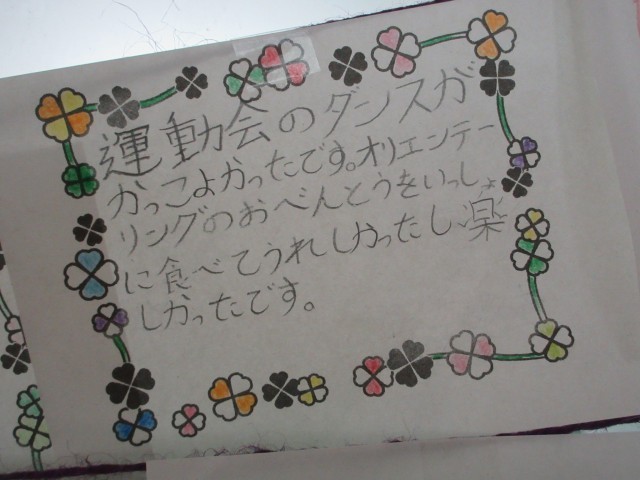 運動会のダンスが
かっこよかったです。オリエンテー
リングのおべんとうをいっしょ
に食べてうれしかったし、楽
しかったです。